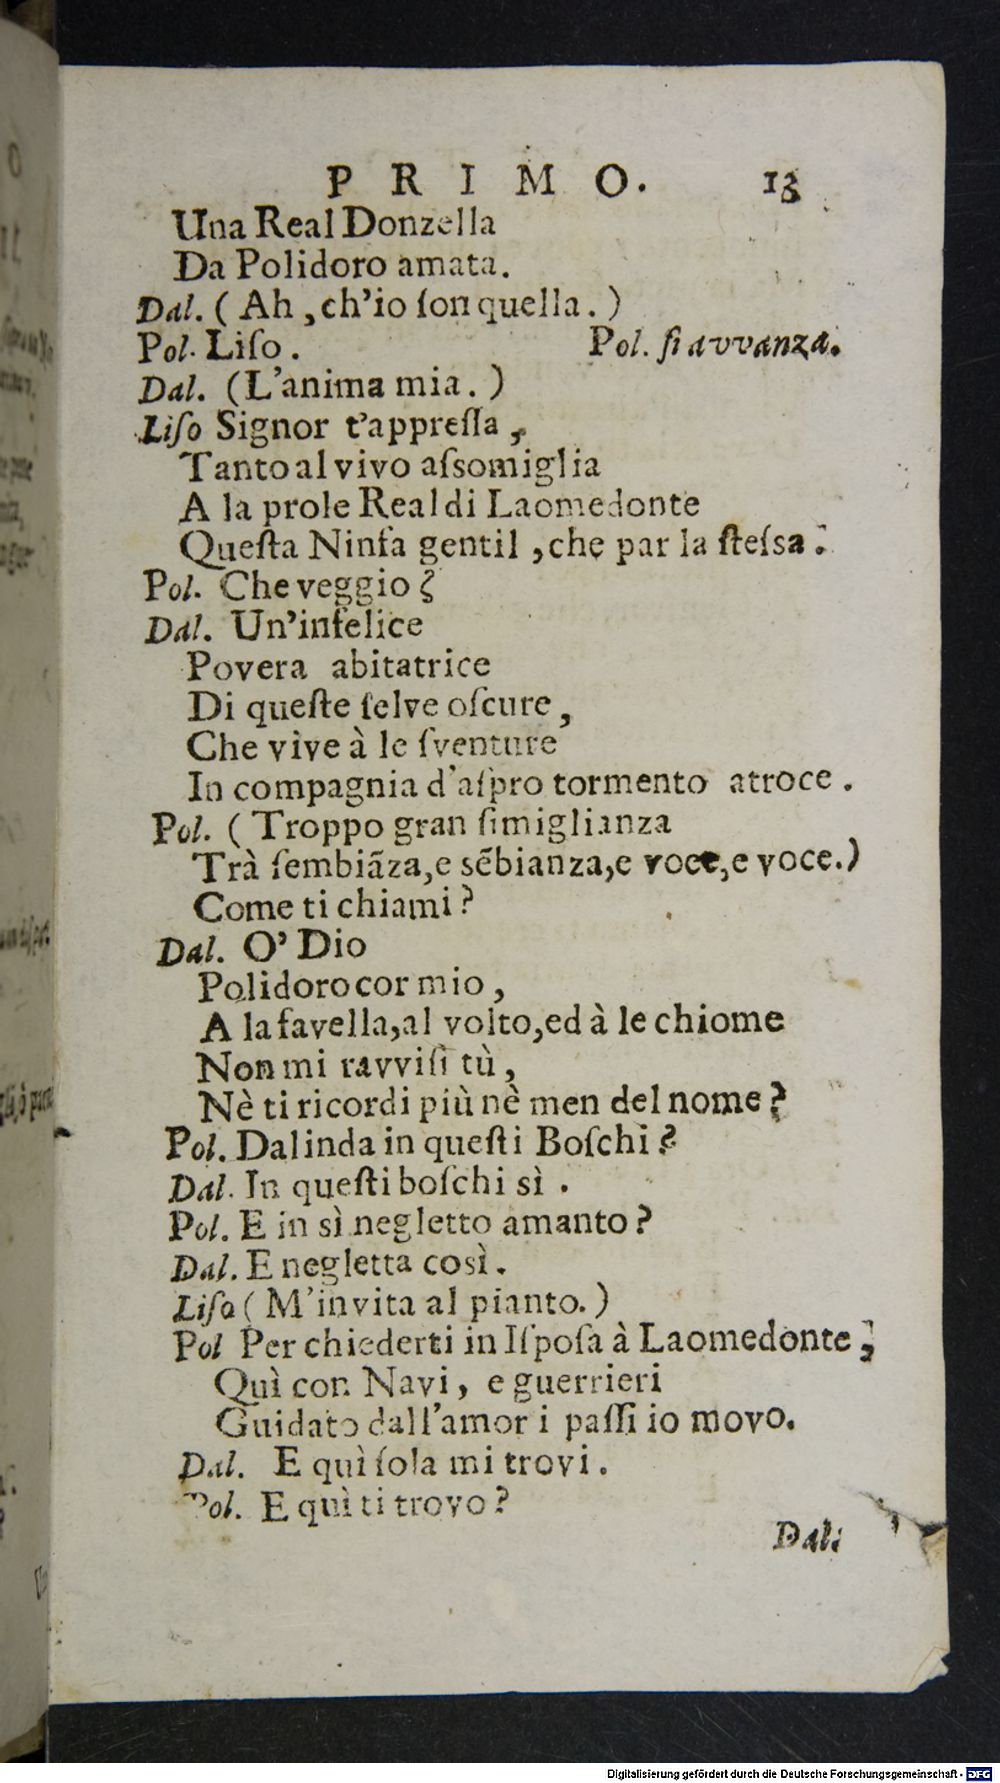 PRIMO. 13
Una Real Donzella
Da Polidoro amata.
Dal. ( Ah , ch'io ſon quella . )
Pol. Liſo . Pol. ſi avvanza.
Dal. (L'anima mia . )
Liſo Signor t'appreſſa ,
Tanto al vivo aſsomiglia
A la prole Real di Laomedonte
Queſta Ninfa gentil , che par la ſteſsa .
Pol. Che veggio ?
Dal. Un'infelice
Povera abitatrice
Di queſte ſelve oſcure ,
Che vive à le ſventure
In compagnia d'aſpro tormento atroce .
Pol. ( Troppo gran ſimiglianza
Trà ſembiãza,e sẽbianza,e voce,e voce.)
Come ti chiami ?
Dal. O' Dio
Polidoro cor mio ,
A la favella,al volto,ed à le chiome
Non mi ravviſi tù ,
Nè ti ricordi più nè men del nome ?
Pol. Dalinda in queſti Boſchi ?
Dal. In queſti boſchi sì .
Pol. E in sì negletto amanto ?
Dal. E negletta così .
Liſo ( M'invita al pianto. )
Pol Per chiederti in Iſpoſa à Laomedonte ,
Quì con Navi , e guerrieri
Guidato dall'amor i paſſi io movo.
Dal. E quì ſola mi trovi .
Pol. E quì ti trovo ?
Dal:
Digitalisierung gefördert durch die Deutsche Forschungsgemeinschaft - DFG